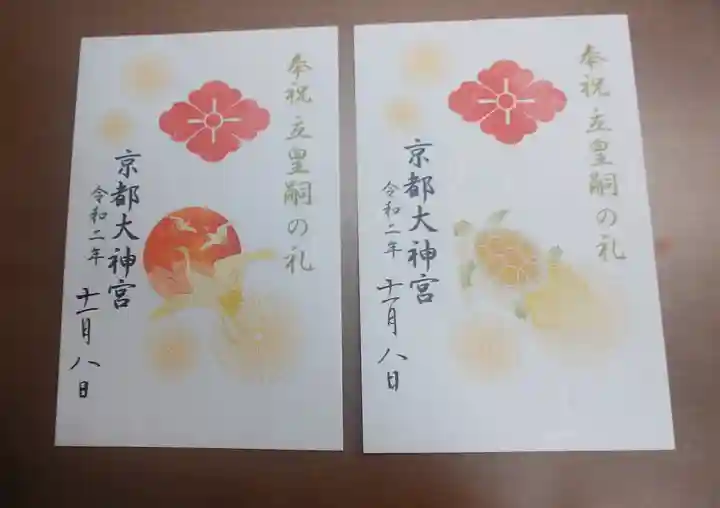 奉祝立皇嗣の礼
京都大神宮
令和二年
十一月八日
奉祝立皇嗣の礼
京都大神宮
令和二年
十一月八日